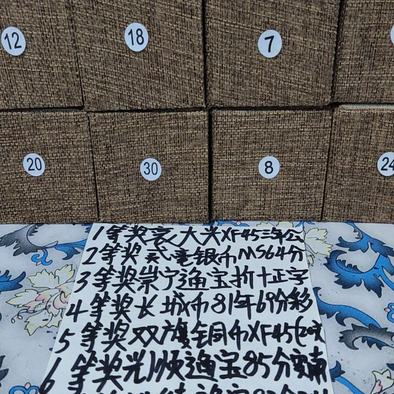 12 18 7
20 30 8 24
1等奖袁大头XF45三年公
2等奖贰毫银币MS64分
3等奖崇宁通宝折十正字
4等奖长城币81年69分彩
5等奖双旗铜币XF45
6等奖光顺通宝85分